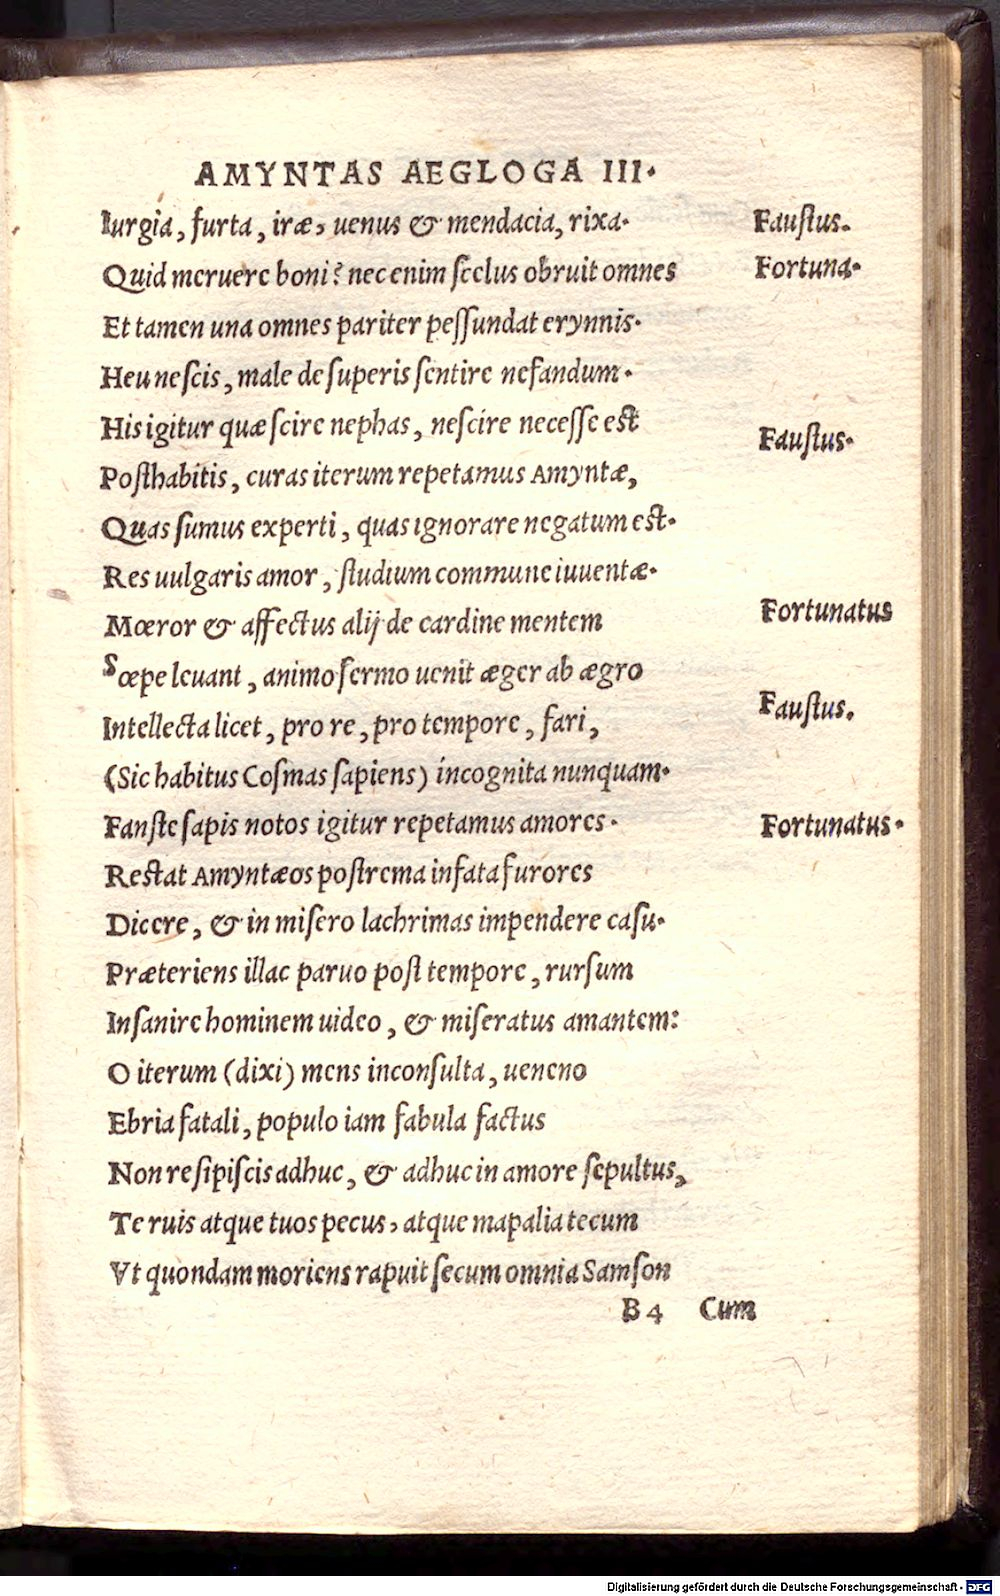 AMYNTAS AEGLOGA III.
Iurgia, furta, iræ, uenus & mendacia, rixa. Faustus.
Quid meruere boni? nec enim scelus obruit omnes Fortuna.
Et tamen una omnes pariter pessundat erynnis.
Heu nescis, male de superis sentire nefandum.
His igitur quæ scire nephas, nescire necesse est Faustus.
Posthabitis, curas iterum repetamus Amyntæ,
Quas sumus experti, quas ignorare negatum est.
Res uulgaris amor, studium commune iuuentæ.
Mœror & affectus alij de cardine mentem Fortunatus
Sœpe leuant, animo sermo uenit æger ab ægro
Intellecta licet, pro re, pro tempore, fari, Faustus.
(Sic habitus Cosmas sapiens) incognita nunquam.
Fanste sapis notos igitur repetamus amores. Fortunatus.
Restat Amyntæos postrema in fata furores
Dicere, & in misero lachrimas impendere casu.
Præteriens illac paruo post tempore, rursum
Insanire hominem uideo, & miseratus amantem:
O iterum (dixi) mens inconsulta, ueneno
Ebria fatali, populo iam fabula factus
Non resipiscis adhuc, & adhuc in amore sepultus,
Te ruis atque tuos pecus, atque mapalia tecum
Vt quondam moriens rapuit secum omnia Samson
B 4 Cum
Digitalisierung gefördert durch die Deutsche Forschungsgemeinschaft - DFG